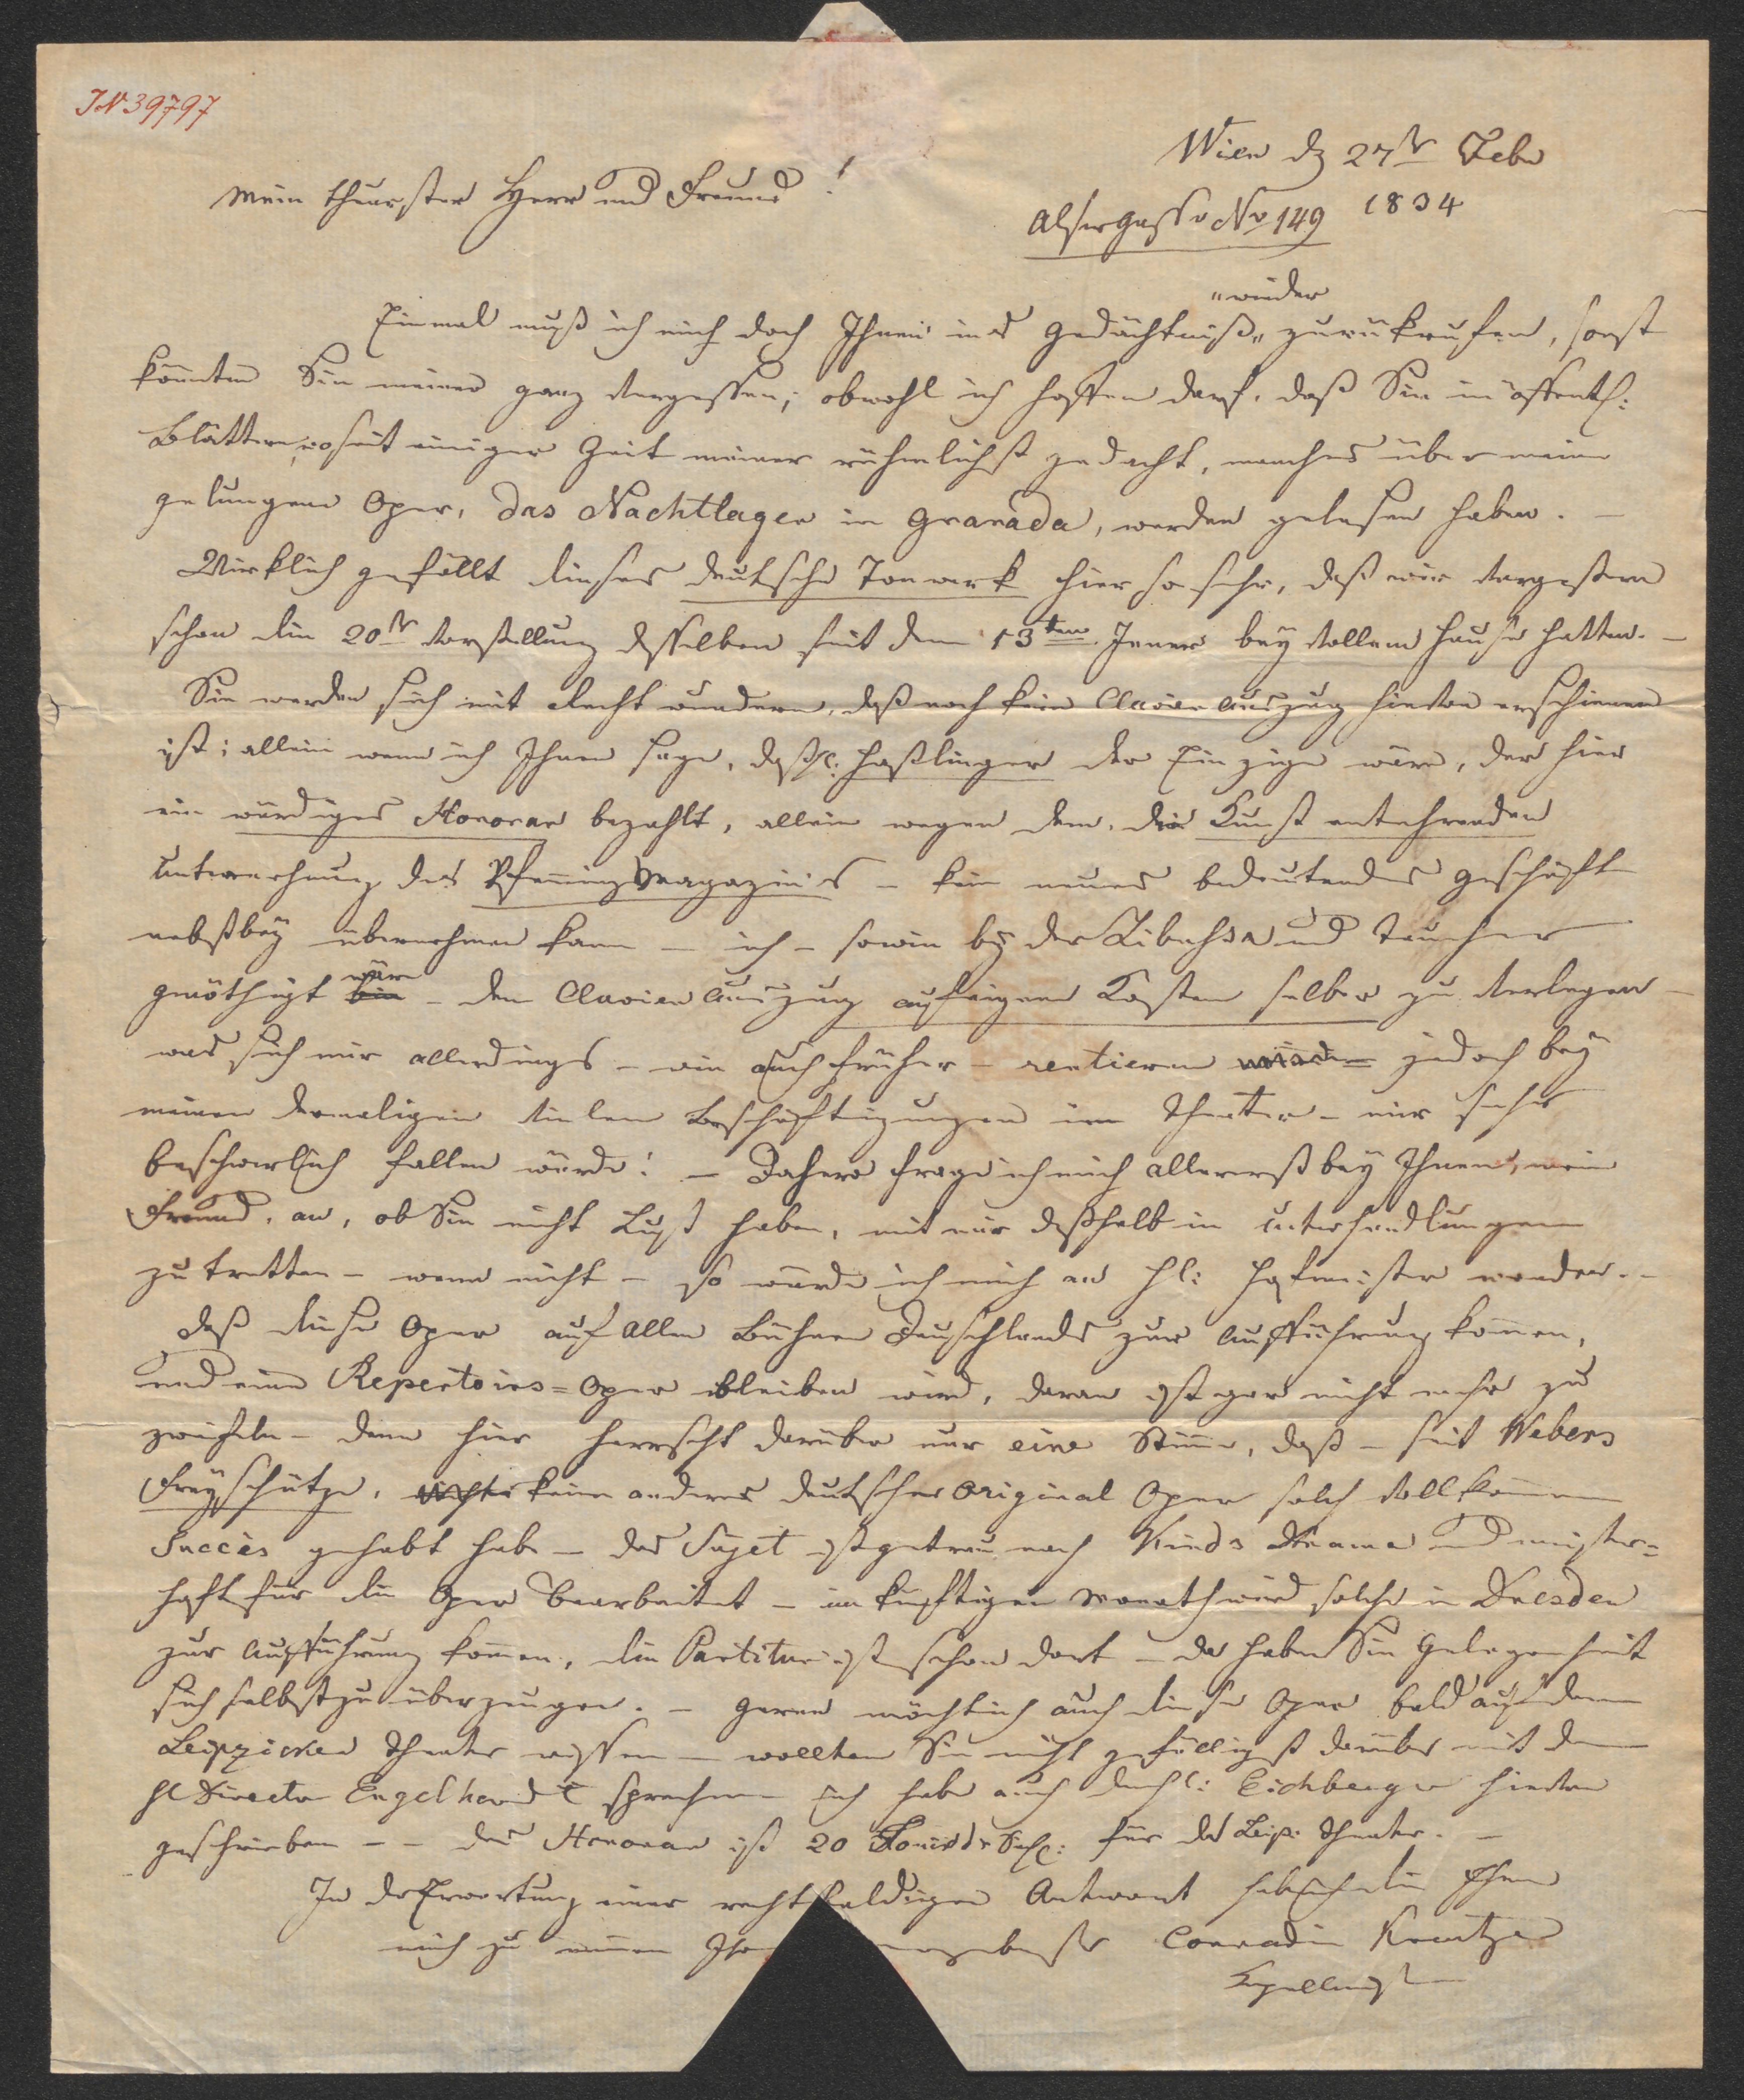 IN 39797
Wien d. 27ten Febr
1834
Alsergasse No 149
Mein theuerster Herr und Freund!
Einmal muß ich mich doch Ihnen ins Gedächtniß „wieder„ zurückrufen, sonst
könnten Sie meiner ganz vergessen; obwohl ich hoffen darf, daß Sie in öffentl:
Blättern, so seit einiger Zeit meiner rühmlichst gedacht, manches über meine
gelungene Oper, das Nachtlager in Granada, werden gelesen haben. –
Wirklich gefällt dieses deutsche Tonwerk hier so sehr, daß wir vorgestern
schon die 20te Vorstellung desselben seit dem 13ten Jener bey vollem Hause hatten. –
Sie werden sich mit Recht wundern, daß noch kein Clavier Auszug hievon erschienen
ist; allein wenn ich Ihnen sage, daß H: Haßlinger der Einzige wäre, der hier
ein würdiges Honorar bezahlt, allein wegen dem, die Kunst entehrenden
Unternehmung des Pfennig Magazin's – kein neues bedeutendes Geschäft
nebstbey übernehmen kann – ich – sowie bey der Libussa und Taucher
genöthigt bin wäre – den Clavier Auszug auf eigene Kosten selber zu verlegen –
was sich mir allerdings – wie auch früher – rentieren würde – jedoch bey
meinen dermaligen vielen Beschäftigungen im Theater – mir sehr
beschwerlich fallen würde! – Dahero frage ich mich allererst bey Ihnen, mein
Freund, an, ob Sie nicht Lust haben, mit mir deßhalb in Unterhandlungen
zu tretten – wenn nicht – so würde ich mich an H: Hofmeister wenden. –
Daß diese Oper auf allen Bühnen Deuschlands zur Aufführung kommen,
und eine Repertoirs=Oper bleiben wird, daran ist gar nicht mehr zu
zweifeln – denn hier herrscht darüber nur eine Stimme, daß – seit Webers
Freyschütze, keine andere deutsche Original Oper solch vollkommen
Succès gehabt habe – das Sujet ist getreu nach Kinds Drama und meister=
haft für die Oper bearbeitet – im künftigen Monath wird solche in Dresden
zur Aufführung kommen, die Partitur ist schon dort – da haben Sie Gelegenheit
sich selbst zu überzeugen. – Gerne möchte ich auch diese Oper bald auf dem
Leipziger Theater wissen – wollten Sie nicht gefälligst darüber mit dem
H Director Engelhardt sprechen ich habe auch H: Eichberger hievon
geschrieben – – das Honorar ist 20 Louisd'or für das Leip: Theater. –
In der Erwartung einer recht baldigen Antwort habe ich die Ehre
mich zu nennen Ihr ergebenster Conradin Kreutzer
Kapellmeister